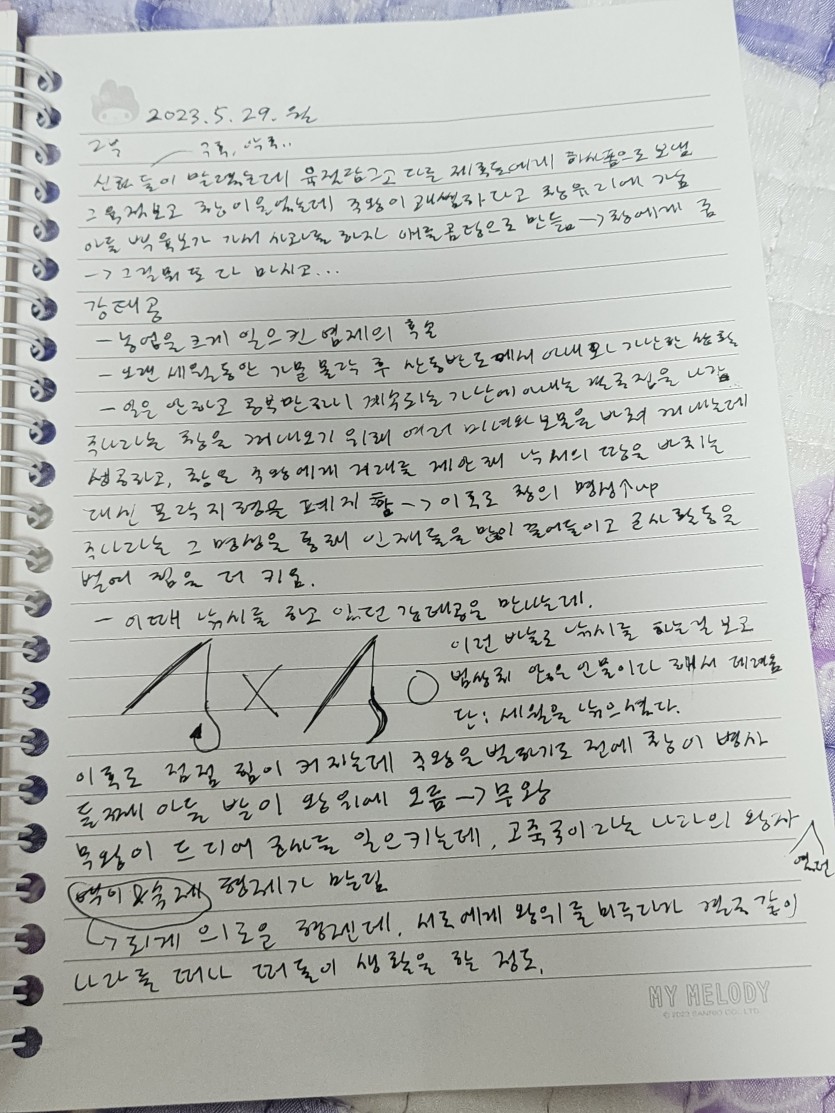 2023.5.29.월
2부
구후, 악후..
신하들이 말렸는데 육젓담그고 다른 제후들에게 하사품으로 보냄
그 육젓보고 창이 울었는데 주왕이 괘씸하다고 창유리에 가둠
아들 백읍고가 가서 사과를 하자 얘를 곰탕으로 만듦 → 창에게 줌
→ 그걸 또 다 마시고...
강태공
- 농업을 크게 일으킨 염제의 후손
- 오랜 세월동안 가문 몰락 후 산동반도에서 아내와 가난한 생활
- 일은 안하고 공부만하니 계속되는 가난에 아내는 결국 집을 나감
주나라는 창을 꺼내오기 위해 여러 미녀와 보물을 바쳐 꺼내는데
성공하고, 창은 주왕에게 거래를 제안해 낙서의 땅을 바치는
대신 포락지형을 폐지함 → 이후로 창의 명성↑up
주나라는 그 명성을 통해 인재들을 많이 끌어들이고 군사활동을
벌여 힘을 더 키움.
- 이때 낚시를 하고 있던 강태공을 만나는데.
X O
이런 바늘로 낚시를 하는걸 보고
범상치 않은 인물이다 해서 데려옴
단: 세월을 낚으셨다.
이후로 점점 힘이 커지는데 주왕을 벌하기도 전에 창이 병사
둘째 아들 발이 왕위에 오름 → 무왕
무왕이 드디어 군사를 일으키는데, 고죽국이라는 나라의 왕자
백이&숙제 형제가 말림
→ 되게 의로운 형젠데, 서로에게 왕위를 미루다가 결국 같이
나라를 떠나 떠돌이 생활을 한 정도.
MY MELODY
© 2023 SANRIO CO., LTD.